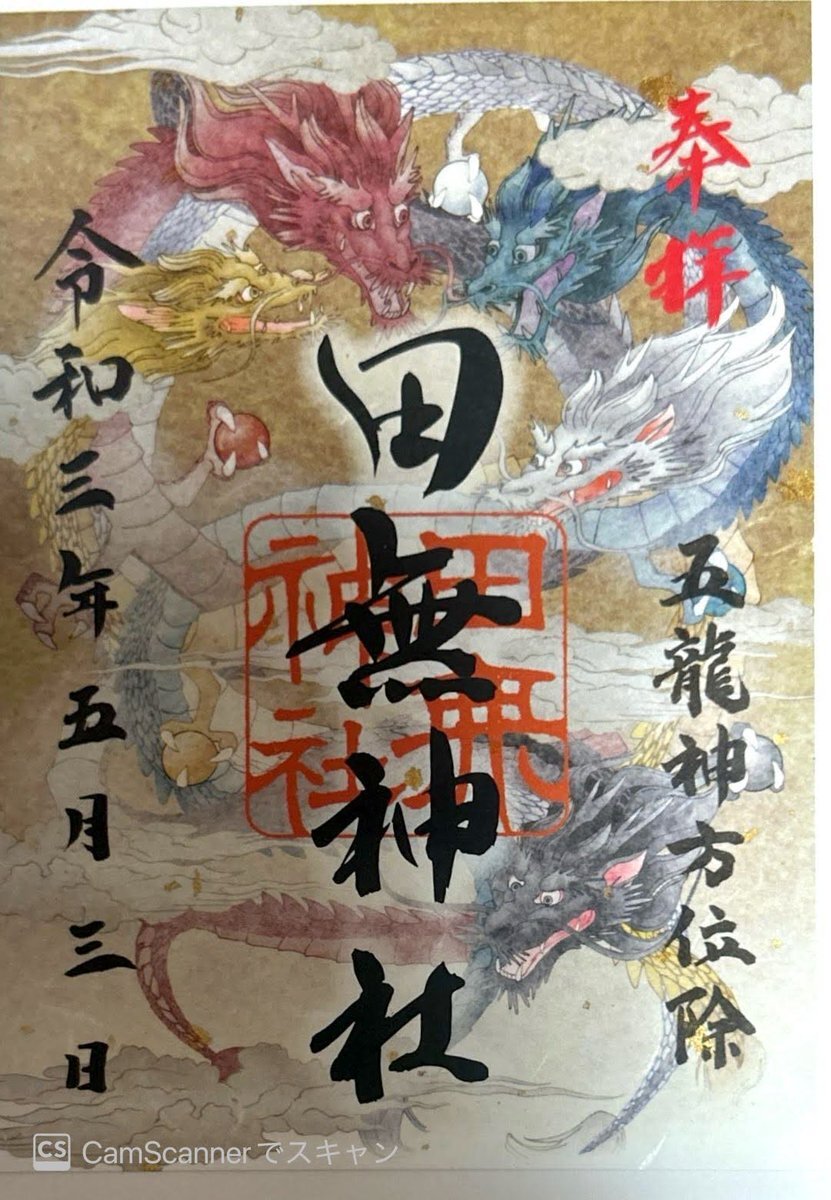 奉拝
五龍神方位除
田無神社
田無神社
令和三年五月三日
CS CamScannerでスキャン